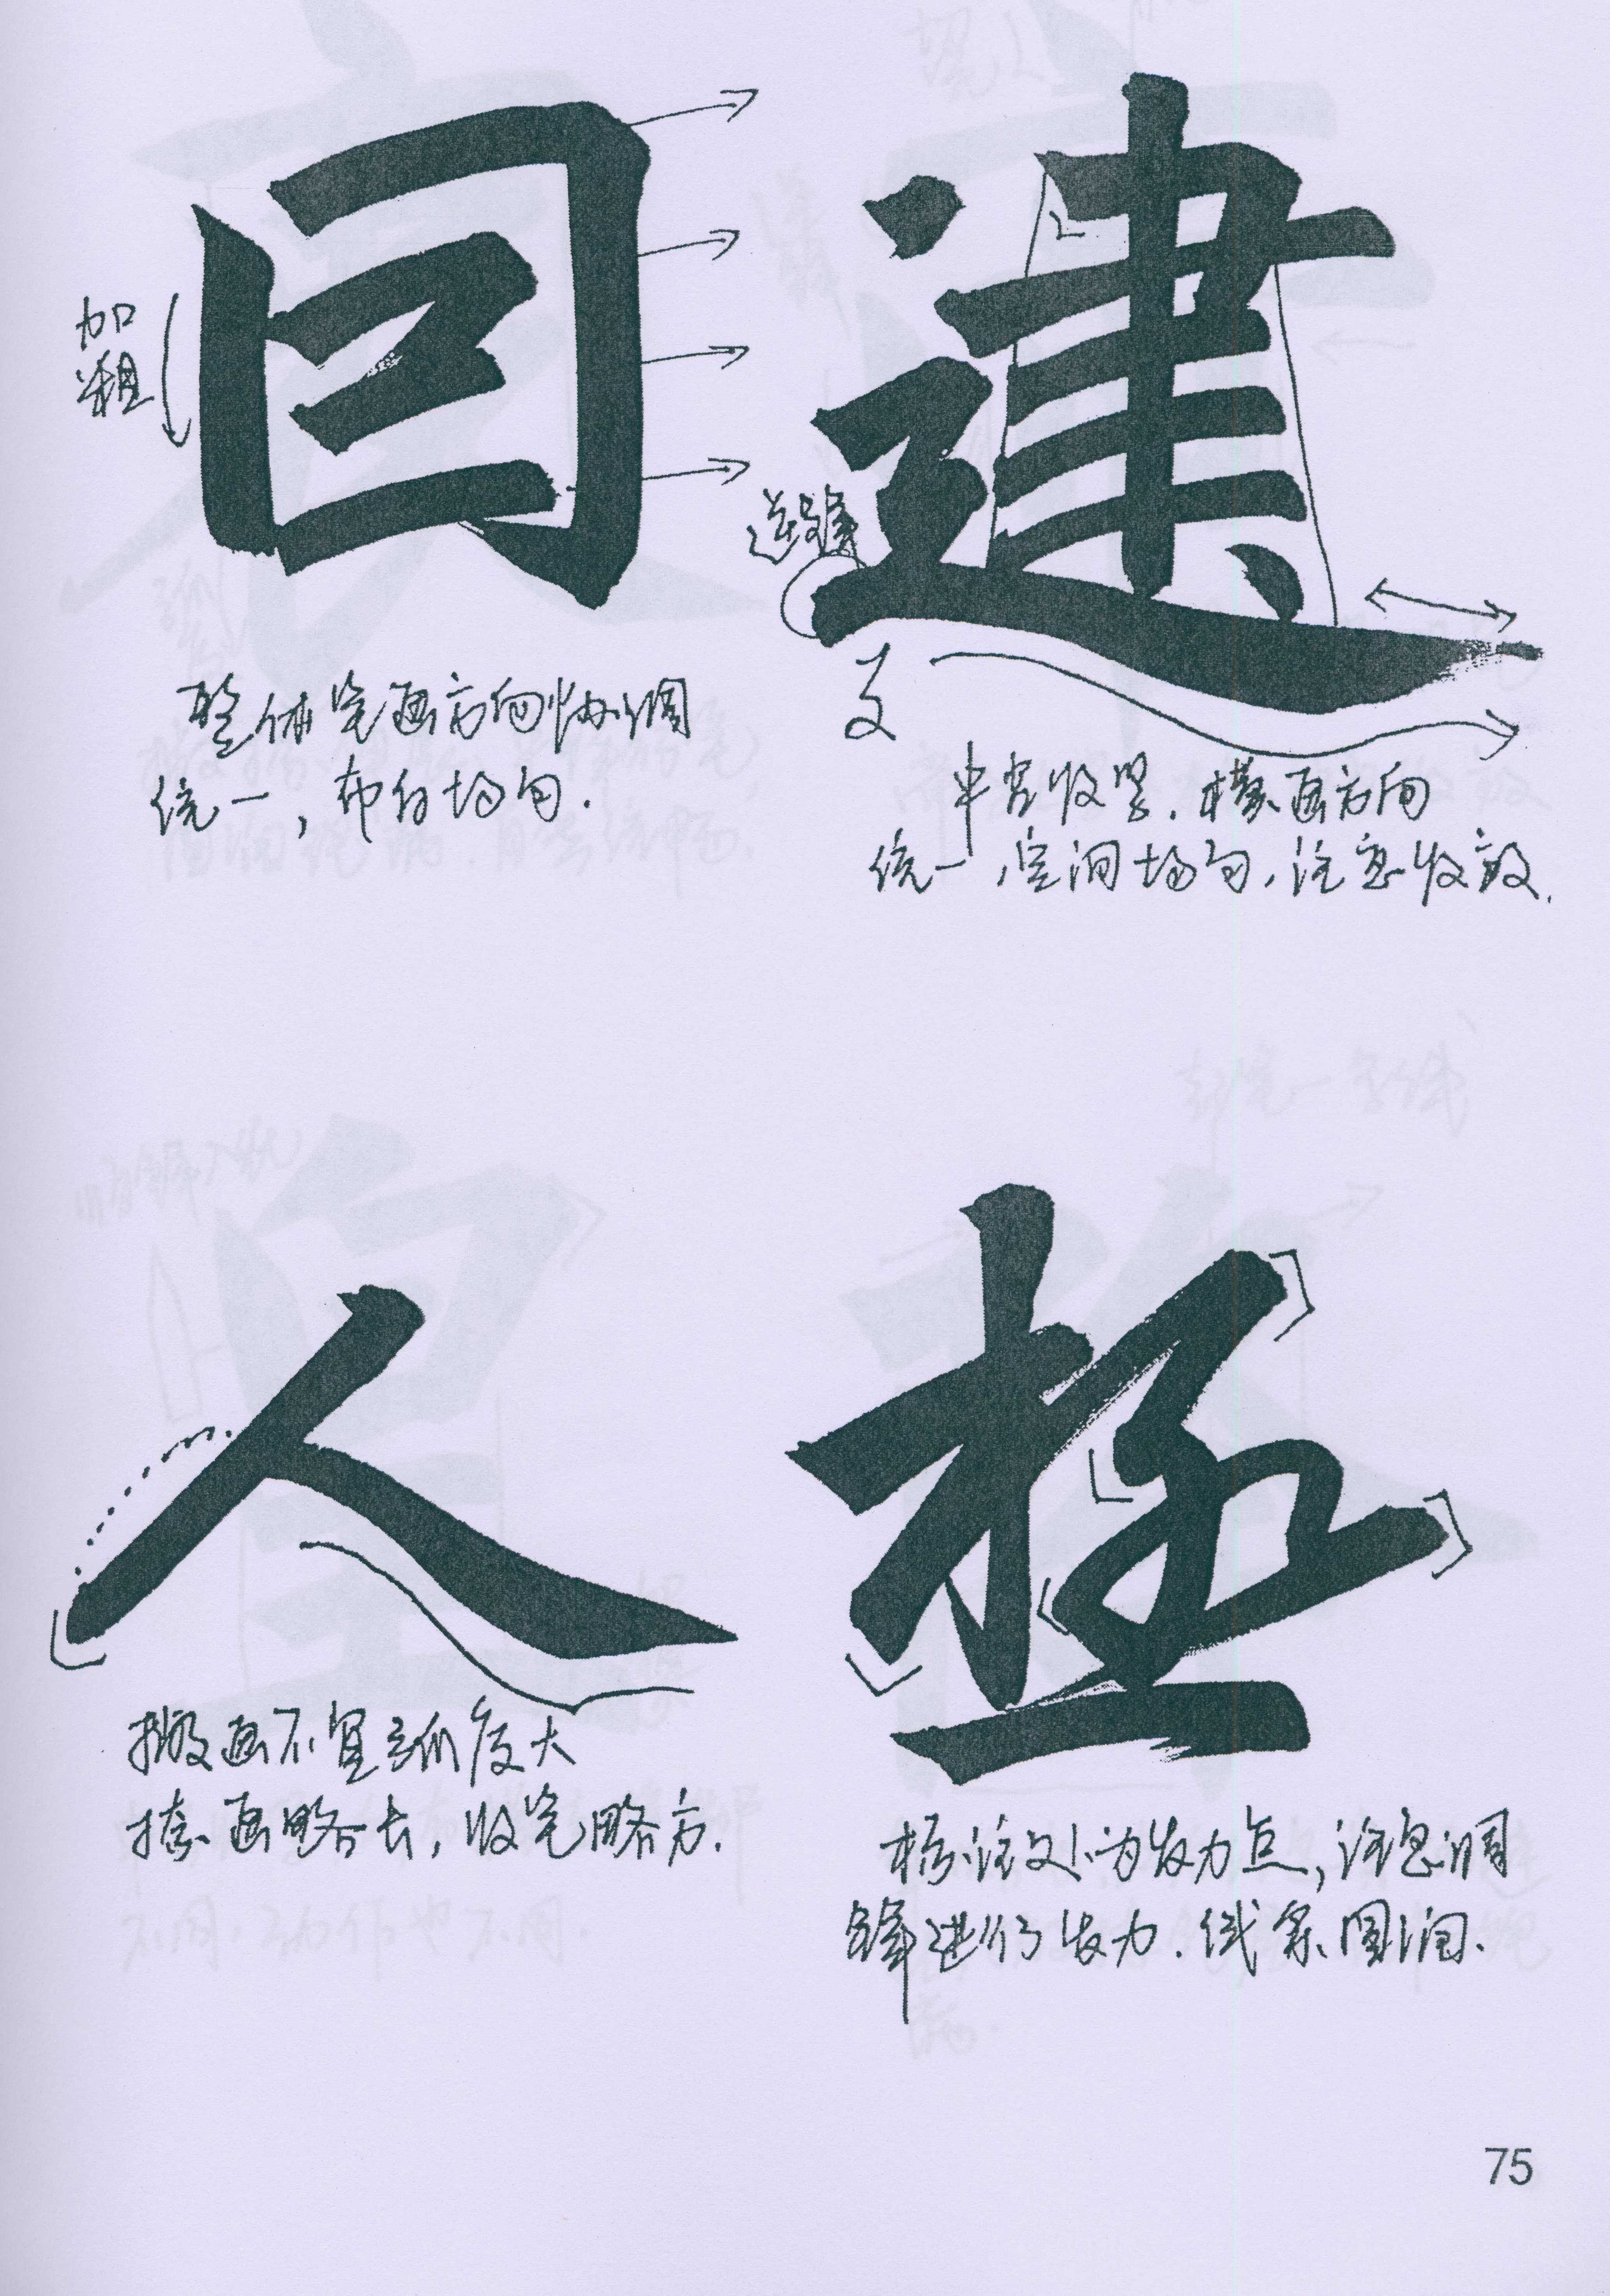 回
加
粗
整体笔画方向协调
统一，布白均匀.
建
逆锋
中宫收紧.横画方向
统一,空间均匀,注意收放.
人
撇画不宜弧度大
捺画略长,收笔略方.
極
标注处为发力点,注意调
锋进行发力.线条圆润.
75